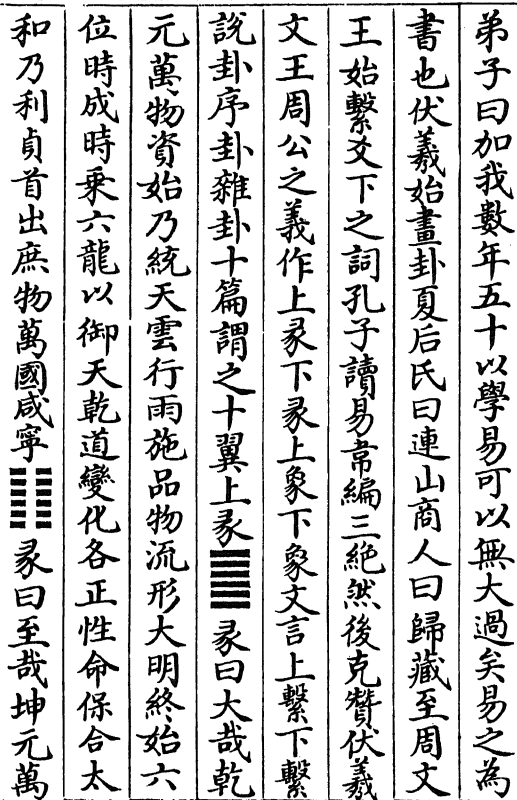 弟子曰加我數年五十以學易可以無大過矣易之為
書也伏羲始畫卦夏后氏曰連山商人曰歸藏至周文
王始繫爻下之詞孔子讀易韋編三絶然後克贊伏羲
文王周公之義作上彖下彖上象下象文言上繫下繫
說卦序卦雜卦十篇謂之十翼上彖䷀彖曰大哉乾
元萬物資始乃統天雲行雨施品物流形大明終始六
位時成時乘六龍以御天乾道變化各正性命保合太
和乃利貞首出庶物萬國咸寧䷁彖曰至哉坤元萬